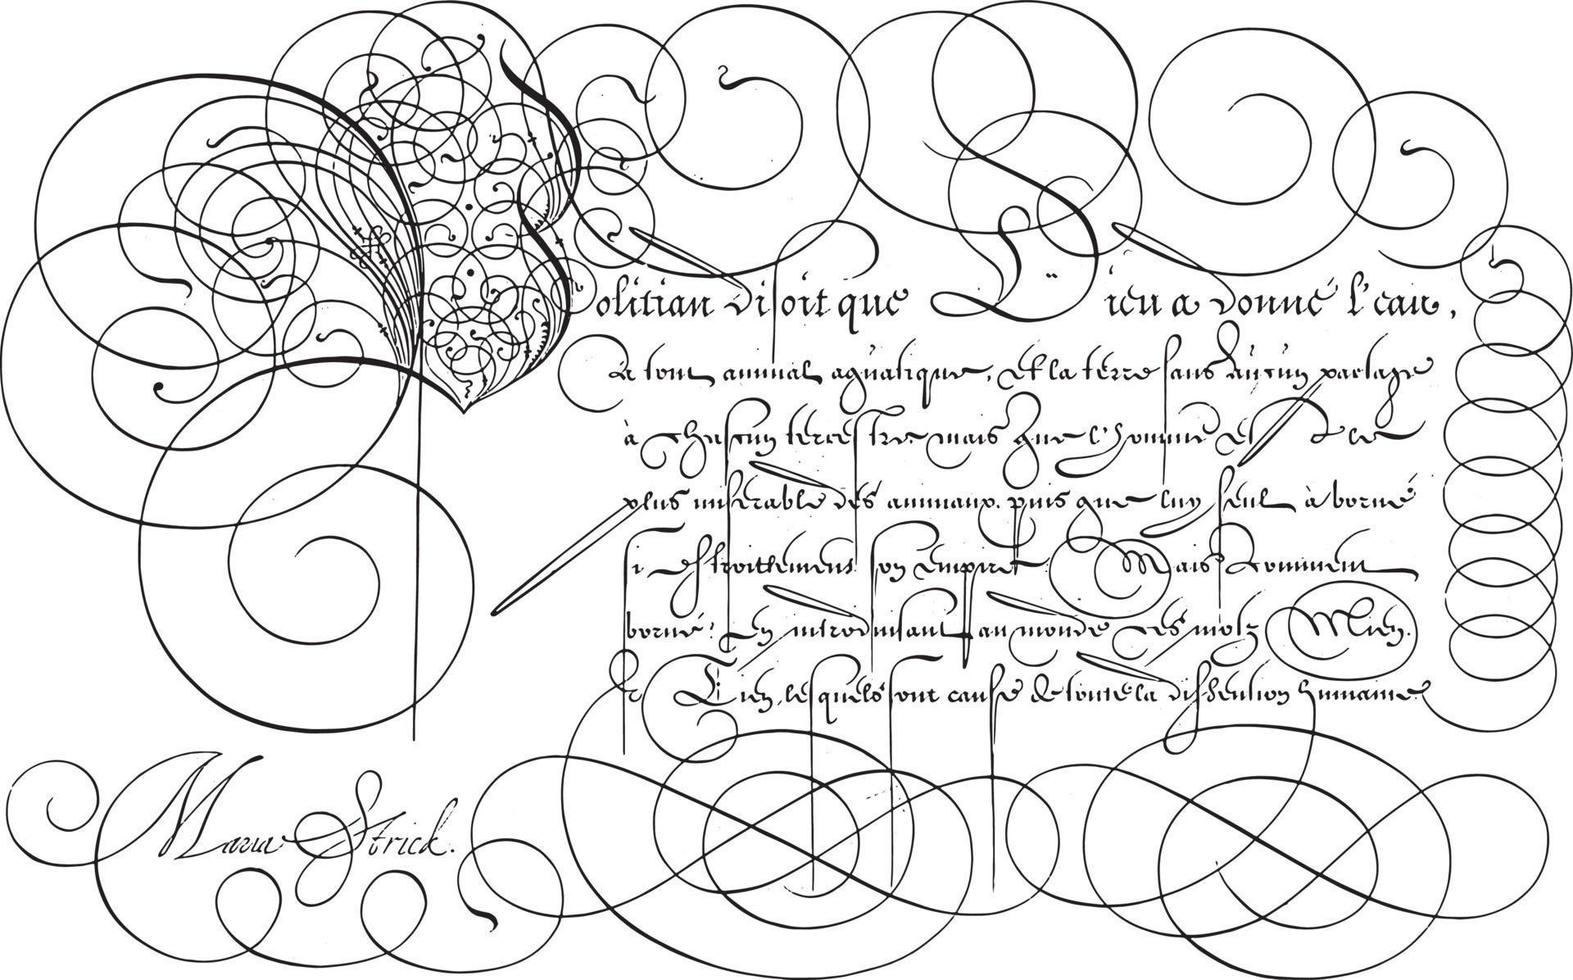 Politian disoit que Dieu a donné l'eau,
à tout animal aquatique, et la terre sans aucun partage
à chascun terrestre mais que l'homme est le
plus miserable des animaux. puis que luy seul à borné
si estroittement son empire Mais Comment
borné? En introduisant au monde ces motz Mien.
et Tien, lesquels sont cause de toute la dissention humaine
Maria Strick.